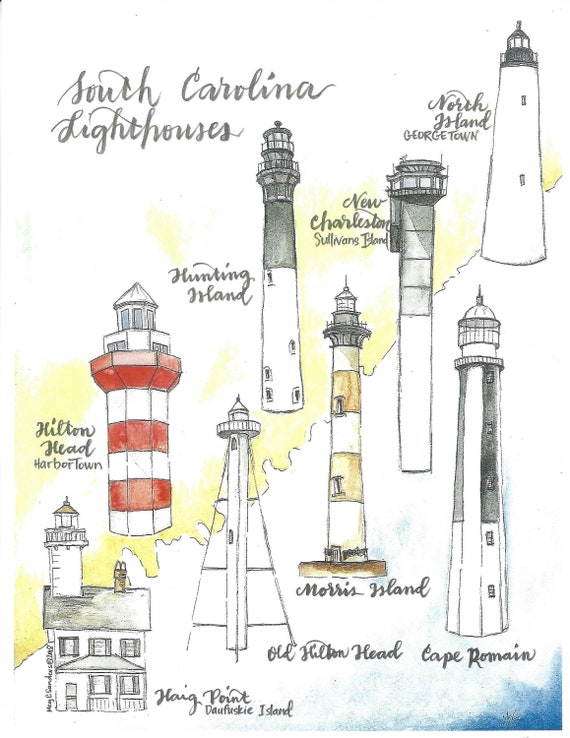 South Carolina
Lighthouses
North
Island
GEORGETOWN
New
Charleston
Sullivans Island
Hunting
Island
Hilton
Head
HARBOR TOWN
Morris Island
Old Hilton Head
Cape Romain
Haig Point
Daufuskie Island